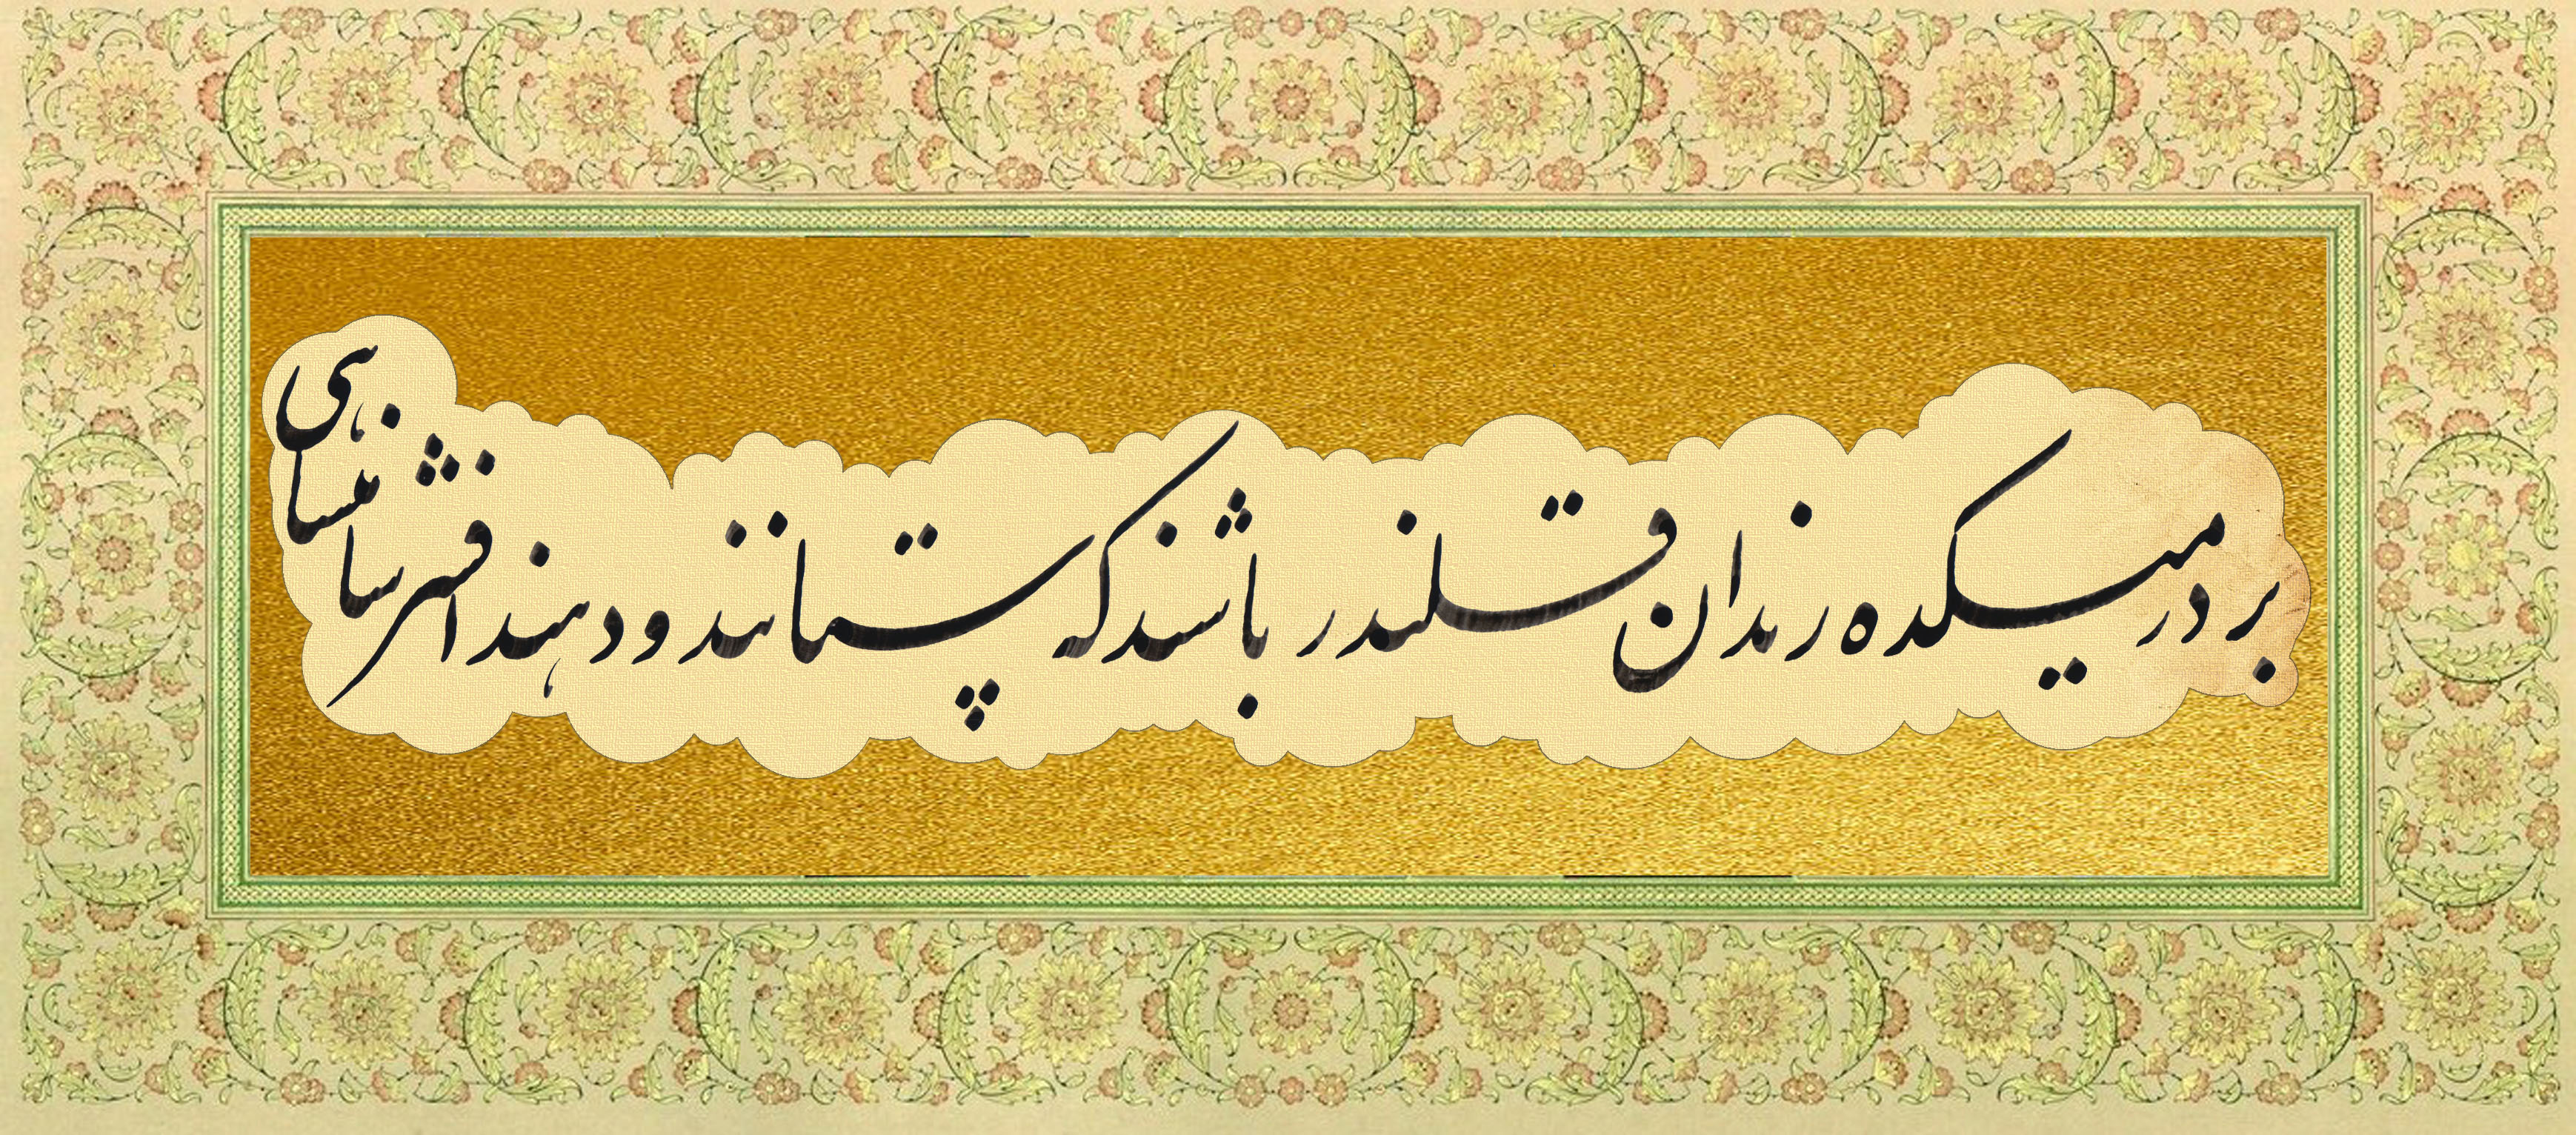 بر در میکده رندان قلندر باشند که ستانند و دهند افسر شاهنشاهی